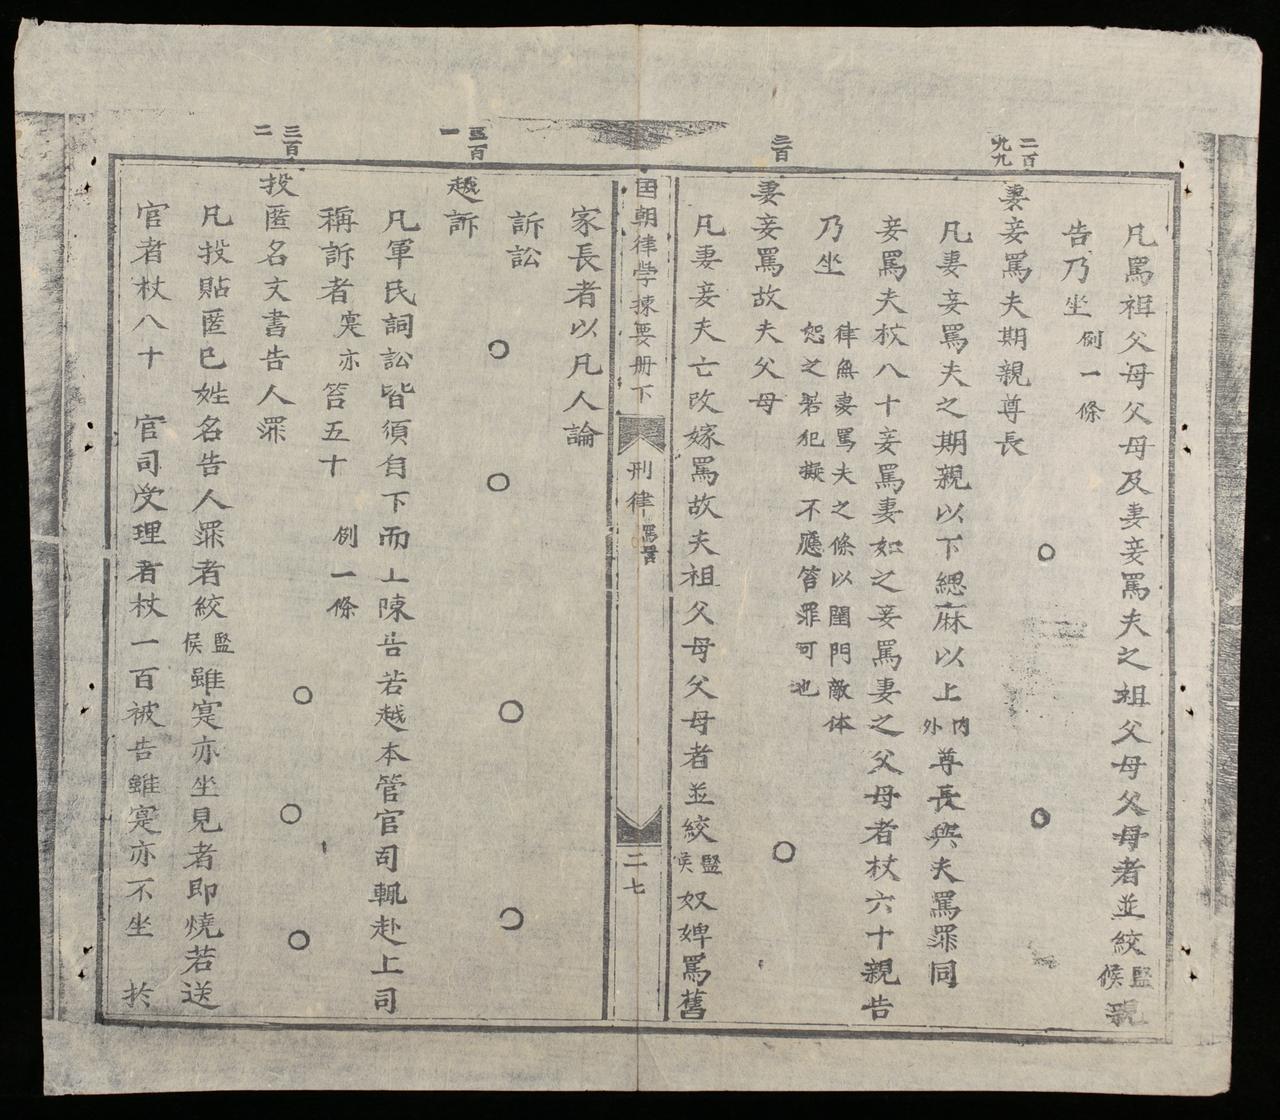 二百九九
凡罵祖父母父母及妻妾罵夫之祖父母父母者並絞監候親
告乃坐例一條
妻妾罵夫期親尊長
凡妻妾罵夫之期親以下緦麻以上內外尊長與夫罵罪同
妾罵夫杖八十妾罵妻如之妾罵妻之父母者杖六十親告
乃坐律無妻罵夫之條以閨門敵体
恕之若犯擬不應笞罪可也
三百
妻妾罵故夫父母
凡妻妾夫亡改嫁罵故夫祖父母父母者並絞監候奴婢罵舊
国朝律学揀要册下
刑律罵詈
二七
家長者以凡人論
訴訟
三百一
越訴
凡軍民詞訟皆須自下而上陳告若越本管官司輒赴上司
稱訴者寔亦笞五十例一條
三百二
投匿名文書告人罪
凡投貼匿己姓名告人罪者絞監候雖寔亦坐見者即燒若送
官者杖八十 官司受理者杖一百被告雖寔亦不坐 於